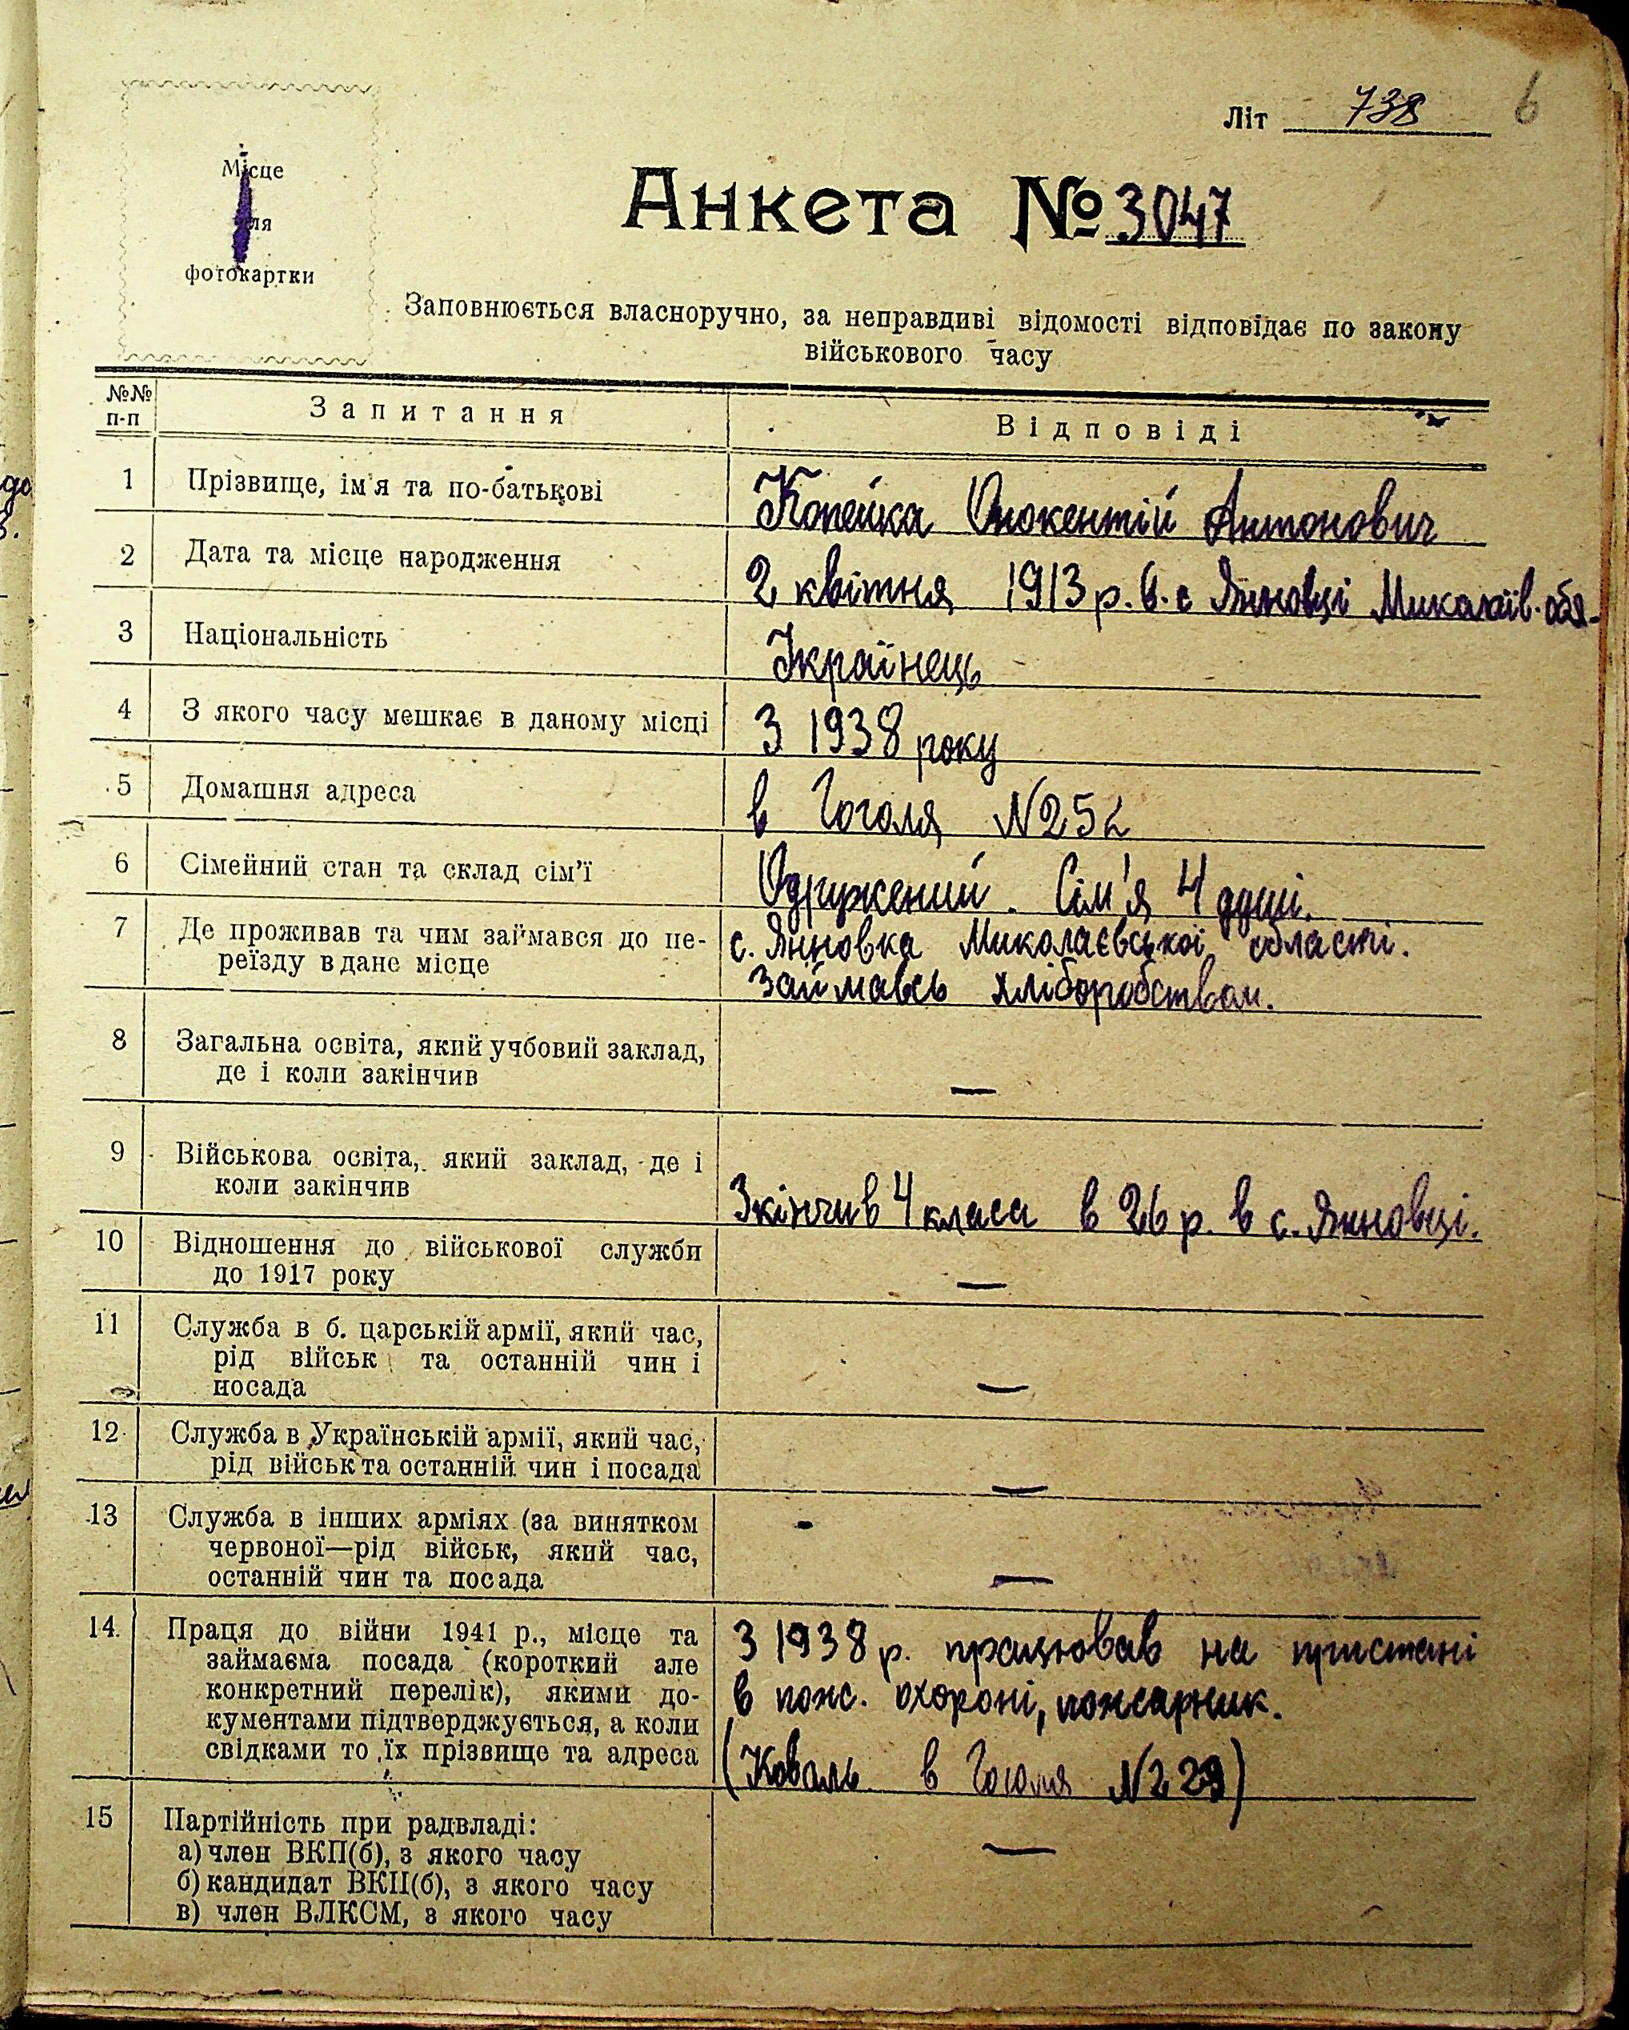 Літ 738 6
Місце
для
фотокартки
Анкета № 3047
Заповнюється власноручно, за неправдиві відомості відповідає по закону
військового часу
№№ п-п Запитання Відповіді
1 Прізвище, ім'я та по-батькові Копейка Інокентій Антонович
2 Дата та місце народження 2 квітня 1913 р. в. с Янновці Миколаїв. обл.
3 Національність Українець
4 З якого часу мешкає в даному місці З 1938 року
5 Домашня адреса в Гоголя N252
6 Сімейний стан та склад сім'ї Одружений. Сім'я 4 душі.
7 Де проживав та чим займався до пе- с. Янновка Миколаєвської області.
реїзду в дане місце Займавсь хліборобством.
8 Загальна освіта, який учбовий заклад,
де і коли закінчив —
9 Військова освіта, який заклад, де і
коли закінчив Зкінчив 4 класа в 26 р. в с. Янновці.
10 Відношення до військової служби
до 1917 року —
11 Служба в б. царській армії, який час,
рід військ та останній чин і
посада —
12 Служба в Українській армії, який час,
рід військ та останній чин і посада —
13 Служба в інших арміях (за винятком
червоної—рід військ, який час,
останній чин та посада —
14. Праця до війни 1941 р., місце та З 1938 р. працював на пристані
займаєма посада (короткий але
конкретний перелік), якими до- в пож. охороні, пожарник.
кументами підтверджується, а коли
свідками то їх прізвище та адреса (Коваль в Гоголя N229)
15 Партійність при радвладі:
а) член ВКП(б), з якого часу —
б) кандидат ВКП(б), з якого часу
в) член ВЛКСМ, з якого часу